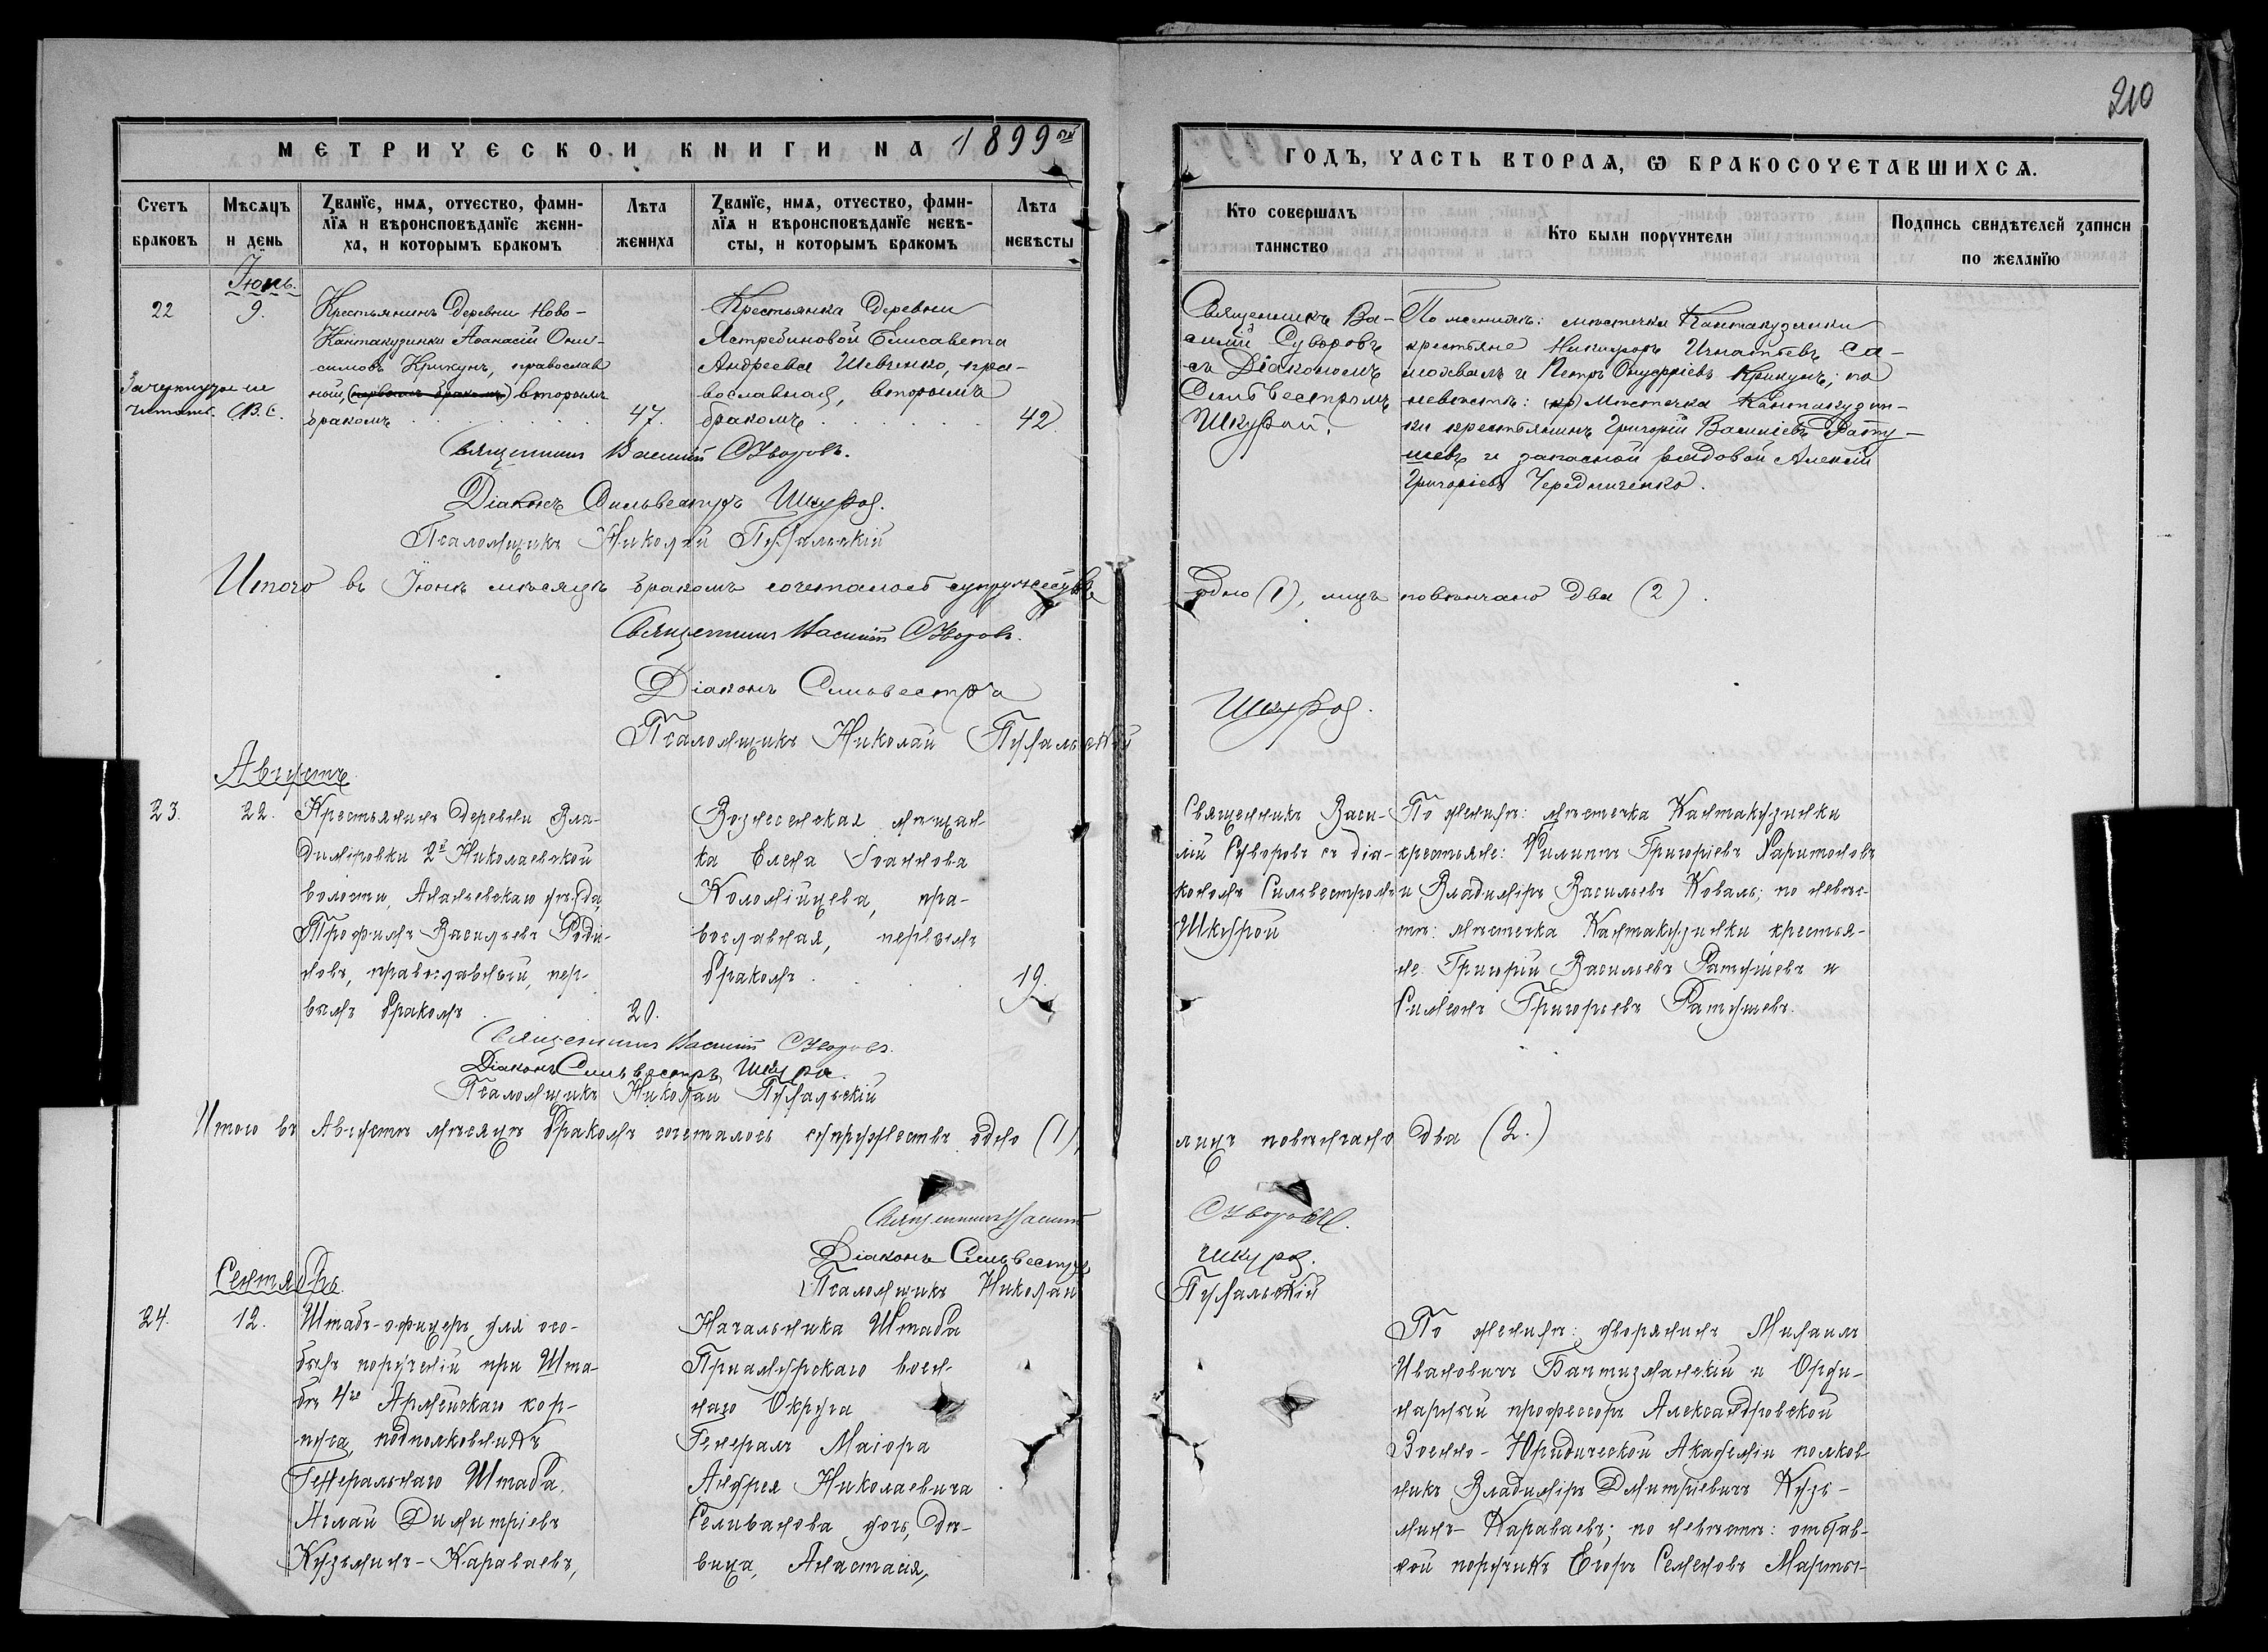 210
МЕТРИЧЕСКОЙ КНИГИ НА 1899ый
ГОДЪ, ЧАСТЬ ВТОРАЯ, Ѡ БРАКОСОЧЕТАВШИХСЯ.
Счетъ браковъ
Мѣсяцъ и день
Званїе, имя, отчество, фами-
лїя и вѣроисповѣданїе жени-
ха, и которымъ бракомъ
Лѣта жениха
Званїе, имя, отчество, фами-
лїя и вѣроисповѣданїе невѣ-
сты, и которымъ бракомъ
Лѣта невѣсты
Кто совершалъ таинство
Кто были поручители
Подпись свидѣтелей записи по желанїю
Іюнь.
22
9.
Крестьянинъ деревни Ново-
Кантакузинки Аѳанасій Они-
симовъ Крикунъ, православ
ный, (первымъ бракомъ) вторымъ
бракомъ
Зачеркнутое не
читать. С.В.С.
47.
Крестьянка деревни
Ястребиновой Елисавета
Андреева Шевченко, пра-
вославная, вторымъ
бракомъ
42
Священникъ Ва-
силій Суворовъ
съ Діакономъ
Сильвестромъ
Шкурой.
По женихѣ: мѣстечка Кантакузинки
крестьяне Никифоръ Игнатьевъ Са-
мохвалъ и Петръ Онуфріевъ Крикунъ; по
невѣстѣ: (кр) мѣстечка Кантакузин-
ки крестьянинъ Григорій Василіевъ Рату-
шевъ и запасной рядовой Алексій
Григоріевъ Чередниченко.
Священникъ Василій Суворовъ.
Діаконъ Сильвестръ Шкура.
Псаломщикъ Николай
Итого въ Іюнѣ мѣсяцѣ бракомъ сочеталось супружествъ
одно (1), лицъ повѣнчано два (2).
Священникъ Василій Суворовъ.
Діаконъ Сильвестръ
Шкура.
Псаломщикъ Николай
Августъ
23.
22.
Крестьянинъ деревни Вла-
диміровки 2й Николаевской
волости, Ананьевскаго уѣзда,
Трофимъ Васильевъ Роди-
новъ, православный, пер-
вымъ бракомъ
20.
Вознесенская мѣщан-
ка Елена Іоаннова
Коломійцева, пра-
вославная, первымъ
бракомъ
19.
Священникъ Васи-
лій Суворовъ съ діа-
кономъ Сильвестромъ
Шкурой
По женихѣ: мѣстечка Кантакузинки
крестьяне: Филиппъ Григоріевъ Харитоновъ
и Владиміръ Васильевъ Коваль; по невѣс-
тѣ: мѣстечка Кантакузинки крестья-
не Григорій Васильевъ Ратушевъ и
Симеонъ Григорьевъ Ратушевъ.
Священникъ Василій Суворовъ.
Діаконъ Сильвестръ Шкура.
Псаломщикъ Николай
Итого въ Августѣ мѣсяцѣ бракомъ сочеталось супружествъ одно (1),
лицъ повѣнчано два (2.)
Священникъ Василій
Суворовъ.
Діаконъ Сильвестръ
Шкура.
Псаломщикъ Николай
Сентябрь.
24.
12.
Штабъ-офицеръ для осо-
быхъ порученій при Шта-
бѣ 4го Армейскаго кор-
пуса, подполковникъ
Генеральнаго Штаба,
Аглай Димитріевъ
Кузьминъ-Караваевъ,
Начальника Штаба
Приамурскаго воен-
наго Округа
Генералъ Маіора
Андрея Николаевича
Селиванова дочь, дѣ-
вица, Анастасія,
По женихѣ: дворянинъ Михаилъ
Ивановичъ Бантизманскій и Орди-
нарный профессоръ Александровской
Военно-Юридической Академіи полков
никъ Владиміръ Дмитріевичъ Кузь-
минъ-Караваевъ; по невѣстѣ: отстав-
ной поручикъ Егоръ Семеновъ Марты-